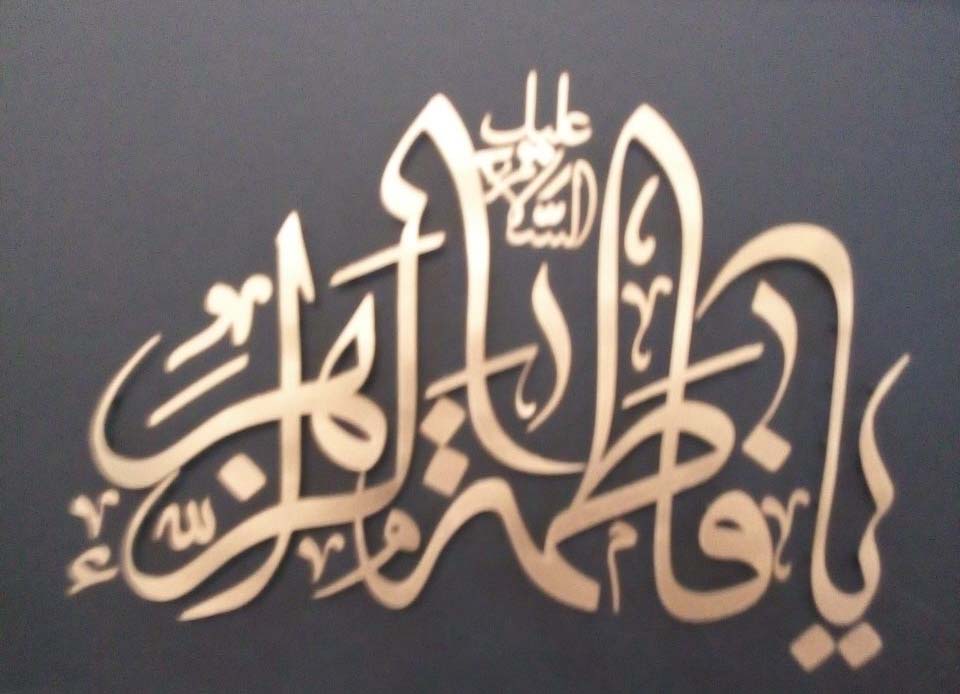 يا فاطمة الزهراء
عليك السلام